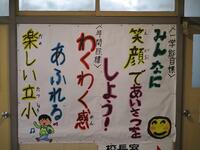 〈一学期目標〉
みんなに
笑顔であいさつを
しよう!
〈年間目標〉
わくわく感
あふれる
楽しい立小
校長室